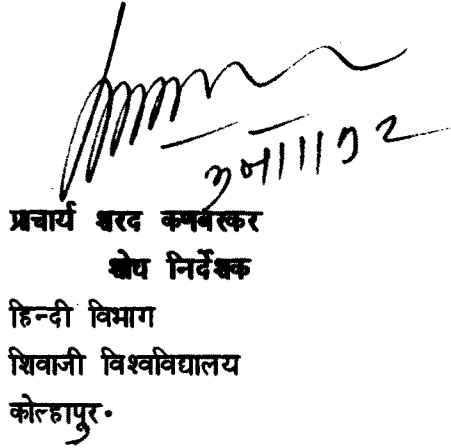 प्राचार्य शरद कणबरकर
शोध निर्देशक
हिन्दी विभाग
शिवाजी विश्वविद्यालय
कोल्हापूर.